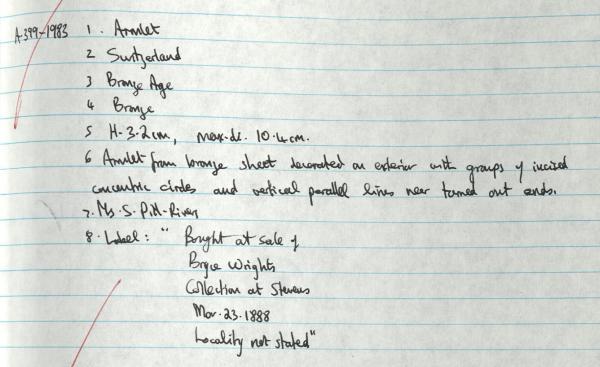 A.399-1983 1. Armlet
2 Switzerland
3 Bronze Age
4 Bronze
5 H-3.2cm, max.di. 10.4cm.
6 Armlet from bronze sheet decorated on exterior with groups of incised
concentric circles and vertical parallel lines near turned out ends.
7. Ms. S. Pitt-Rivers
8. Label: "Bought at sale of
Bryce Wrights
Collection at Stevens
Mar. 23. 1888
Locality not stated"